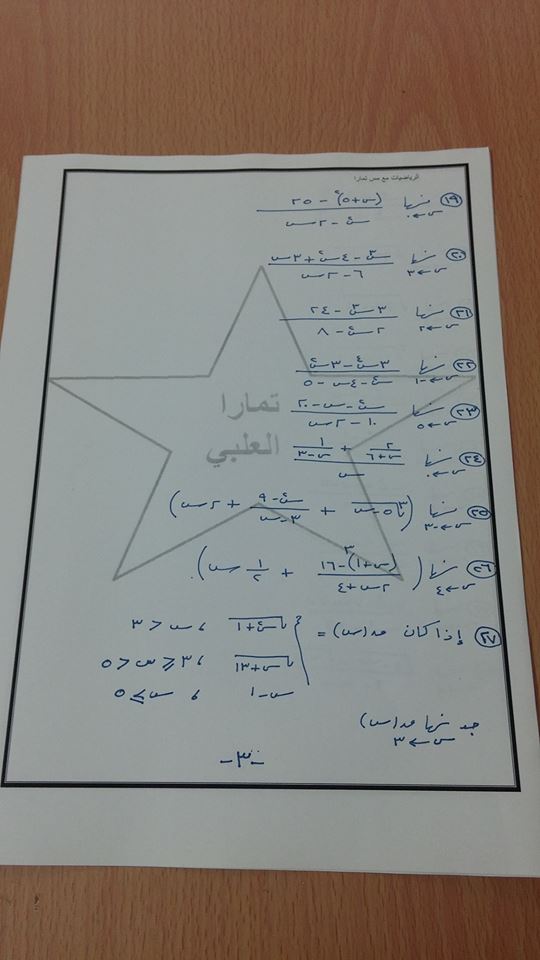 الرياضيات مع مس تمارا
١٩) نها س←٠ ((س+٥)² - ٢٥) / (س² - ٢س)
٢٠) نها س←٣ (س³ - ٤س² + ٣س) / (٦ - ٢س)
٢١) نها س←٢ (٣س³ - ٢٤) / (٢س² - ٨)
٢٢) نها س←-١ / (س² - ٤س - ٥)
٢٣) نها س←٥ (س² - س - ٢٠) / (١٠ - ٢س)
٢٤) نها س←٠ (٢/(س+٦) + ١/(س-٣)) / س
٢٥) نها س←-٣ ( + (س² - ٩)/(٣ - س) + ٢س)
٢٦) نها س←٤ (((س+١)³ - ١٦)/(٢س+٤) + ١/٢ س).
٢٧) إذا كان س) =
، س < ٣
√(س+١٣) ، ٣ ⩽ س < ٥
س - ١ ، س ≥ ٥
جد نها س←٣
-٣-
تمارا
العلبي